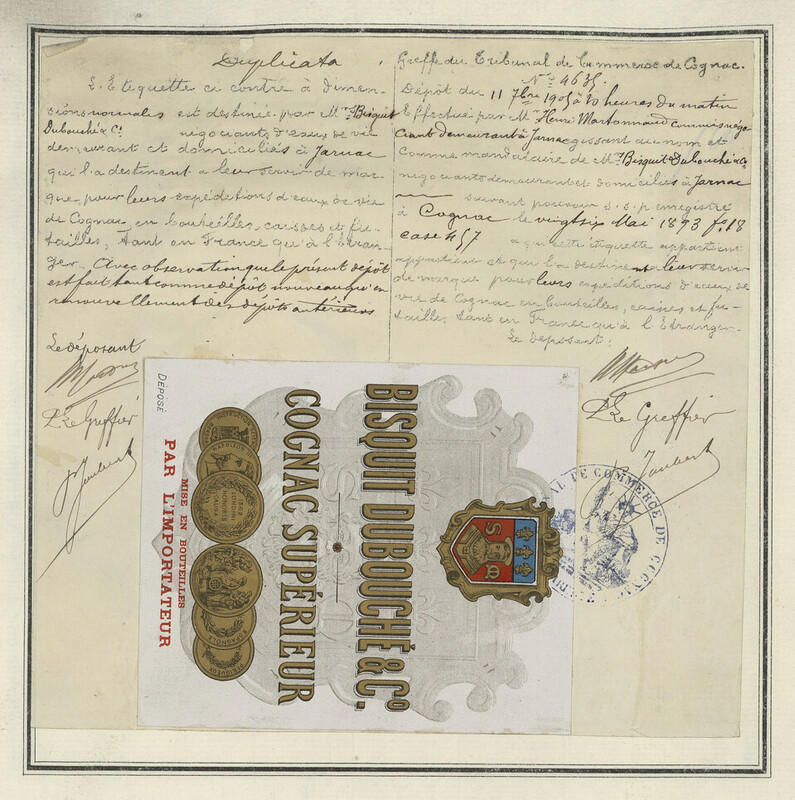 Duplicata
L'Etiquette ci contre à dimen-
sions normales est destinée par MM.rs Bisquit
Dubouché & Cie négociants d'eaux de vie
demeurant et domiciliés à Jarnac
qui l'a destinent a leur servir de mar-
que, pour leurs expéditions d'eaux de vie
de Cognac, en bouteilles, caisses et fu-
tailles, tant en France qu'à l'Etran-
ger. Avec observation que le présent dépôt
est fait tant comme dépôt nouveau qu'en
renouvellement des dépôts antérieurs
Le déposant
Le Greffier
Jaubert
Greffe du Tribunal de Commerce de Cognac.
No 4635.
Dépôt du 11 7bre 1905 à 10 heures du matin
Effectué par M Henri Martonnaud commis négo-
ciant demeurant à Jarnac agissant au nom et
comme mandataire de M.rs Bisquit Dubouché & Co
négociants demeurant et domiciliés à Jarnac
suivant pouvoir s.s.p. enregistré
à Cognac le vingt six Mai 1893 fo 18
case 457
a qui cette étiquette appartient
appartient et qui l'a destinent a leur servir
de marque pour leurs expéditions d'eaux de
vie de Cognac en bouteilles, caisses et fu-
tailles, tant en France qu'à l'Etranger.
Le déposant:
Le Greffier
Jaubert
DÉPOSÉ
BISQUIT DUBOUCHÉ & Co.
COGNAC SUPÉRIEUR
MISE EN BOUTEILLES
PAR L'IMPORTATEUR
DE COMMERCE DE COGNAC